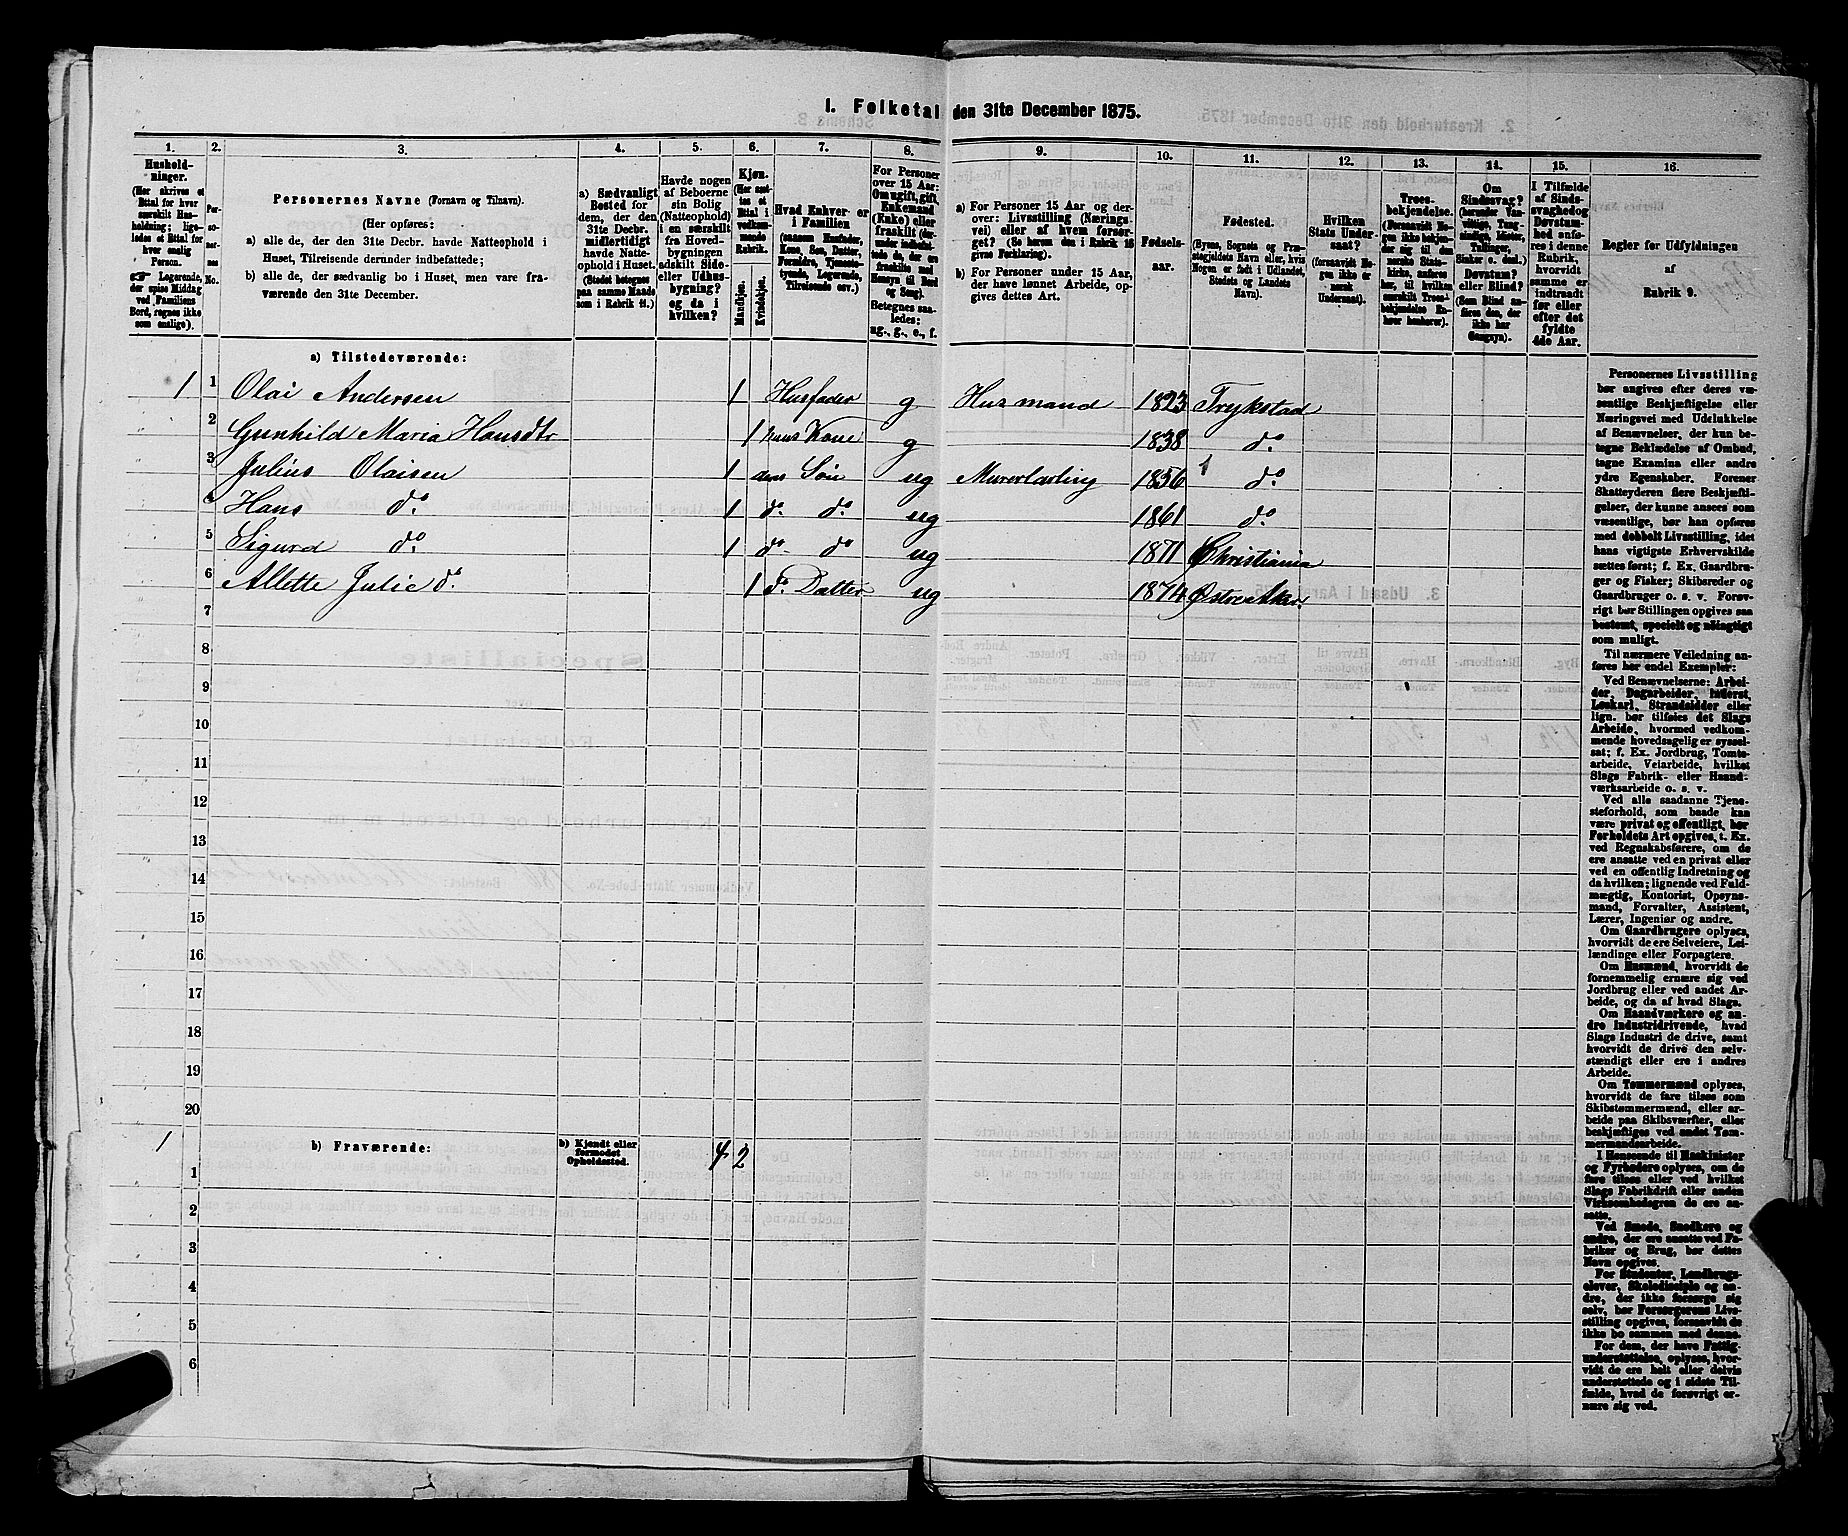 I. Folketal den 31te December 1875.
1. 2. 3. 4. 5. 6. 7. 8. 9. 10. 11. 12. 13. 14. 15. 16.
Hushold-
ninger.
(Her skrives et
Ettal for hver
særskilt Hus-
holdning; lige-
ledes et Ettal for
hver enslig
Person.
☞ Logerende,
der spise Middag
ved Familiens
Bord, regnes ikke
som enslige).
Per-
so-
ner-
nes
No.
Personernes Navne (Fornavn og Tilnavn).
(Her opføres:
a) alle de, der den 31te Decbr. havde Natteophold i
Huset, Tilreisende derunder indbefattede;
b) alle de, der sædvanlig bo i Huset, men vare fra-
værende den 31te December.
a) Sædvanligt
Bosted for
dem, der den
31te Decbr.
midlertidigt
havde Natte-
ophold i Huset.
(Stedet betegnes
paa samme Maade
som i Rubrik 11.)
Havde nogen
af Beboerne
sin Bolig
(Natteophold)
i en særskilt
fra Hoved-
bygningen
adskilt Side-
eller Udhus-
bygning?
og da i
hvilken?
Kjøn.
(Her sæt-
tes et
Ettal i
vedkom-
mende
Rubrik.
Mandkjøn.
Kvindekjøn.
Hvad Enhver er
i Familien
(saasom Husfader,
Kone, Søn, Datter,
Forældre, Tjeneste-
tyende, Logerende,
Tilreisende osv.)
For Personer
over 15 Aar:
Om ugift, gift,
Enkemand
(Enke) eller
fraskilt (der-
under indbefat-
tede de, der ere
fraskilte med
Hensyn til Bord
og Seng).
Betegnes saa-
ledes:
ug., g., e., f.
a) For Personer 15 Aar og der-
over: Livsstilling (Nærings-
vei) eller af hvem forsør-
get? (Se herom den i Rubrik 16
givne Forklaring).
b) For Personer under 15 Aar,
der have lønnet Arbeide, op-
gives dettes Art.
Fødsels-
aar.
Fødested.
(Byens, Sognets og Præ-
stegjældets Navn eller, hvis
Nogen er født i Udlandet,
Stedets og Landets
Navn).
Hvilken
Stats Under-
saat?
(forsaavidt No-
gen ikke er
norsk
Undersaat).
Troes-
bekjendelse.
(Forsaavidt No-
gen ikke bekjen-
der sig til den
norske Stats-
kirke, anføres
her, til hvilken
særskilt Troes-
bekjendelse En-
hver henhører).
Om
Sindssvag?
(herunder Van-
vittige, Tung-
sindige, Idioter,
Tullinger,
Sinker o. desl.)
Døvstum?
eller Blind?
(Som Blind an-
føres den, der
ikke har
Gangsyn).
I Tilfælde
af Sinds-
svaghed og
Døvstum-
hed anfø-
res i denne
Rubrik,
hvorvidt
samme er
indtraadt
før eller
efter det
fyldte
4de Aar.
Regler for Udfyldningen
af
Rubrik 9.
a) Tilstedeværende:
1 1 Olai Andersen 1 Husfader g Husmand 1823 Trykstad
2 Gunhild Maria Hansdtr 1 hans Kone g 1838 do
3 Julius Olaisen 1 deres Søn ug Murerlærling 1856 do
4 Hans do 1 do do ug 1861 do
5 Sigurd do 1 do do ug 1871 Christiania
6 Allette Julie do 1 do Datter ug 1874 Østre Aker
7
8
9
10
11
12
13
14
15
16
17
18
19
20
1 b) Fraværende: b) Kjendt eller
formodet
Opholdssted. 4 2
1
2
3
4
5
6
Personernes Livsstilling
bør angives efter deres væ-
sentlige Beskjæftigelse eller
Næringsvei med Udelukkelse
af Benævnelser, der kun be-
tegne Beklædelse af Ombud,
tagne Examina eller andre
ydre Egenskaber. Forener
Skatteyderen flere Beskjæfti-
gelser, der kunne ansees som
væsentlige, bør han opføres
med dobbelt Livsstilling, idet
hans vigtigste Erhvervskilde
sættes først; f. Ex. Gaardbru-
ger og Fisker; Skibsreder og
Gaardbruger o. s. v. Forøv-
rigt bør Stillingen opgives saa
bestemt, specielt og nøiagtigt
som muligt.
Til nærmere Veiledning an-
føres her endel Exempler:
Ved Benævnelserne: Arbei-
der, Dagarbeider, Inderst,
Løskarl, Strandsidder eller
lign. bør tilføies det Slags
Arbeide, hvormed vedkom-
mende hovedsagelig er syssel-
sat; f. Ex. Jordbrug, Tomte-
arbeide, Veiarbeide, hvilket
Slags Fabrik- eller Haand-
værksarbeide o. s. v.
Ved alle saadanne Tjene-
steforhold, som baade kan
være privat og offentligt, bør
Forholdets Art opgives, t. Ex.
ved Regnskabsførere, om de
ere ansatte ved en privat eller
ved en offentlig Indretning og
da hvilken; lignende ved Fuld-
mægtig, Kontorist, Opsyns-
mand, Forvalter, Assistent,
Lærer, Ingeniør og andre.
Om Gaardbrugere oplyses,
hvorvidt de ere Selveiere, Lei-
lændinge eller Forpagtere.
Om Husmænd, hvorvidt de
fornemmelig ernære sig ved
Jordbrug eller ved andet Ar-
beide, og da af hvad Slags.
Om Haandværkere og an-
dre Industridrivende, hvad
Slags Industri de drive, samt
hvorvidt de drive den selv-
stændigt eller ere i andres
Arbeide.
Om Tømmermænd oplyses,
hvorvidt de fare tilsøs som
Skibstømmermænd, eller ar-
beide paa Skibsværfter, eller
beskjæftiges ved andet Tøm-
mermandsarbeide.
I Henseende til Maskinister
og Fyrbødere oplyses, om de
fare tilsøs eller ved hvilket
Slags Fabrikdrift eller anden
Virksomhedsgren de ere an-
satte.
Ved Smede, Snedkere og
andre, der ere ansatte ved Fa-
briker og Brug, bør dettes
Navn opgives.
For Studenter, Landbrugs-
elever, Skoledisciple og an-
dre, der ikke forsørge sig
selv, bør Forsørgerens Livs-
stilling opgives, forsaavidt de
ikke bo sammen med denne.
For dem, der have Fattig-
understøttelse, oplyses, hvor-
vidt de ere helt eller delvis
understøttede og i sidste Til-
fælde, hvad de forøvrigt er-
nære sig ved.